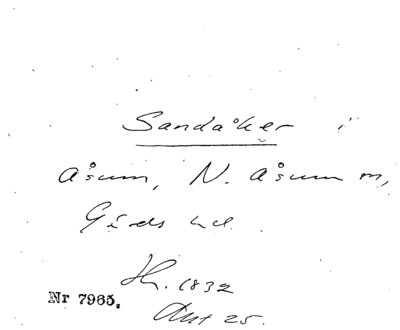 Sandåker i
Åsum, N. Åsum sn,
Gärds hd.
Sk. 1832
Akt 25.
Nr 7965.